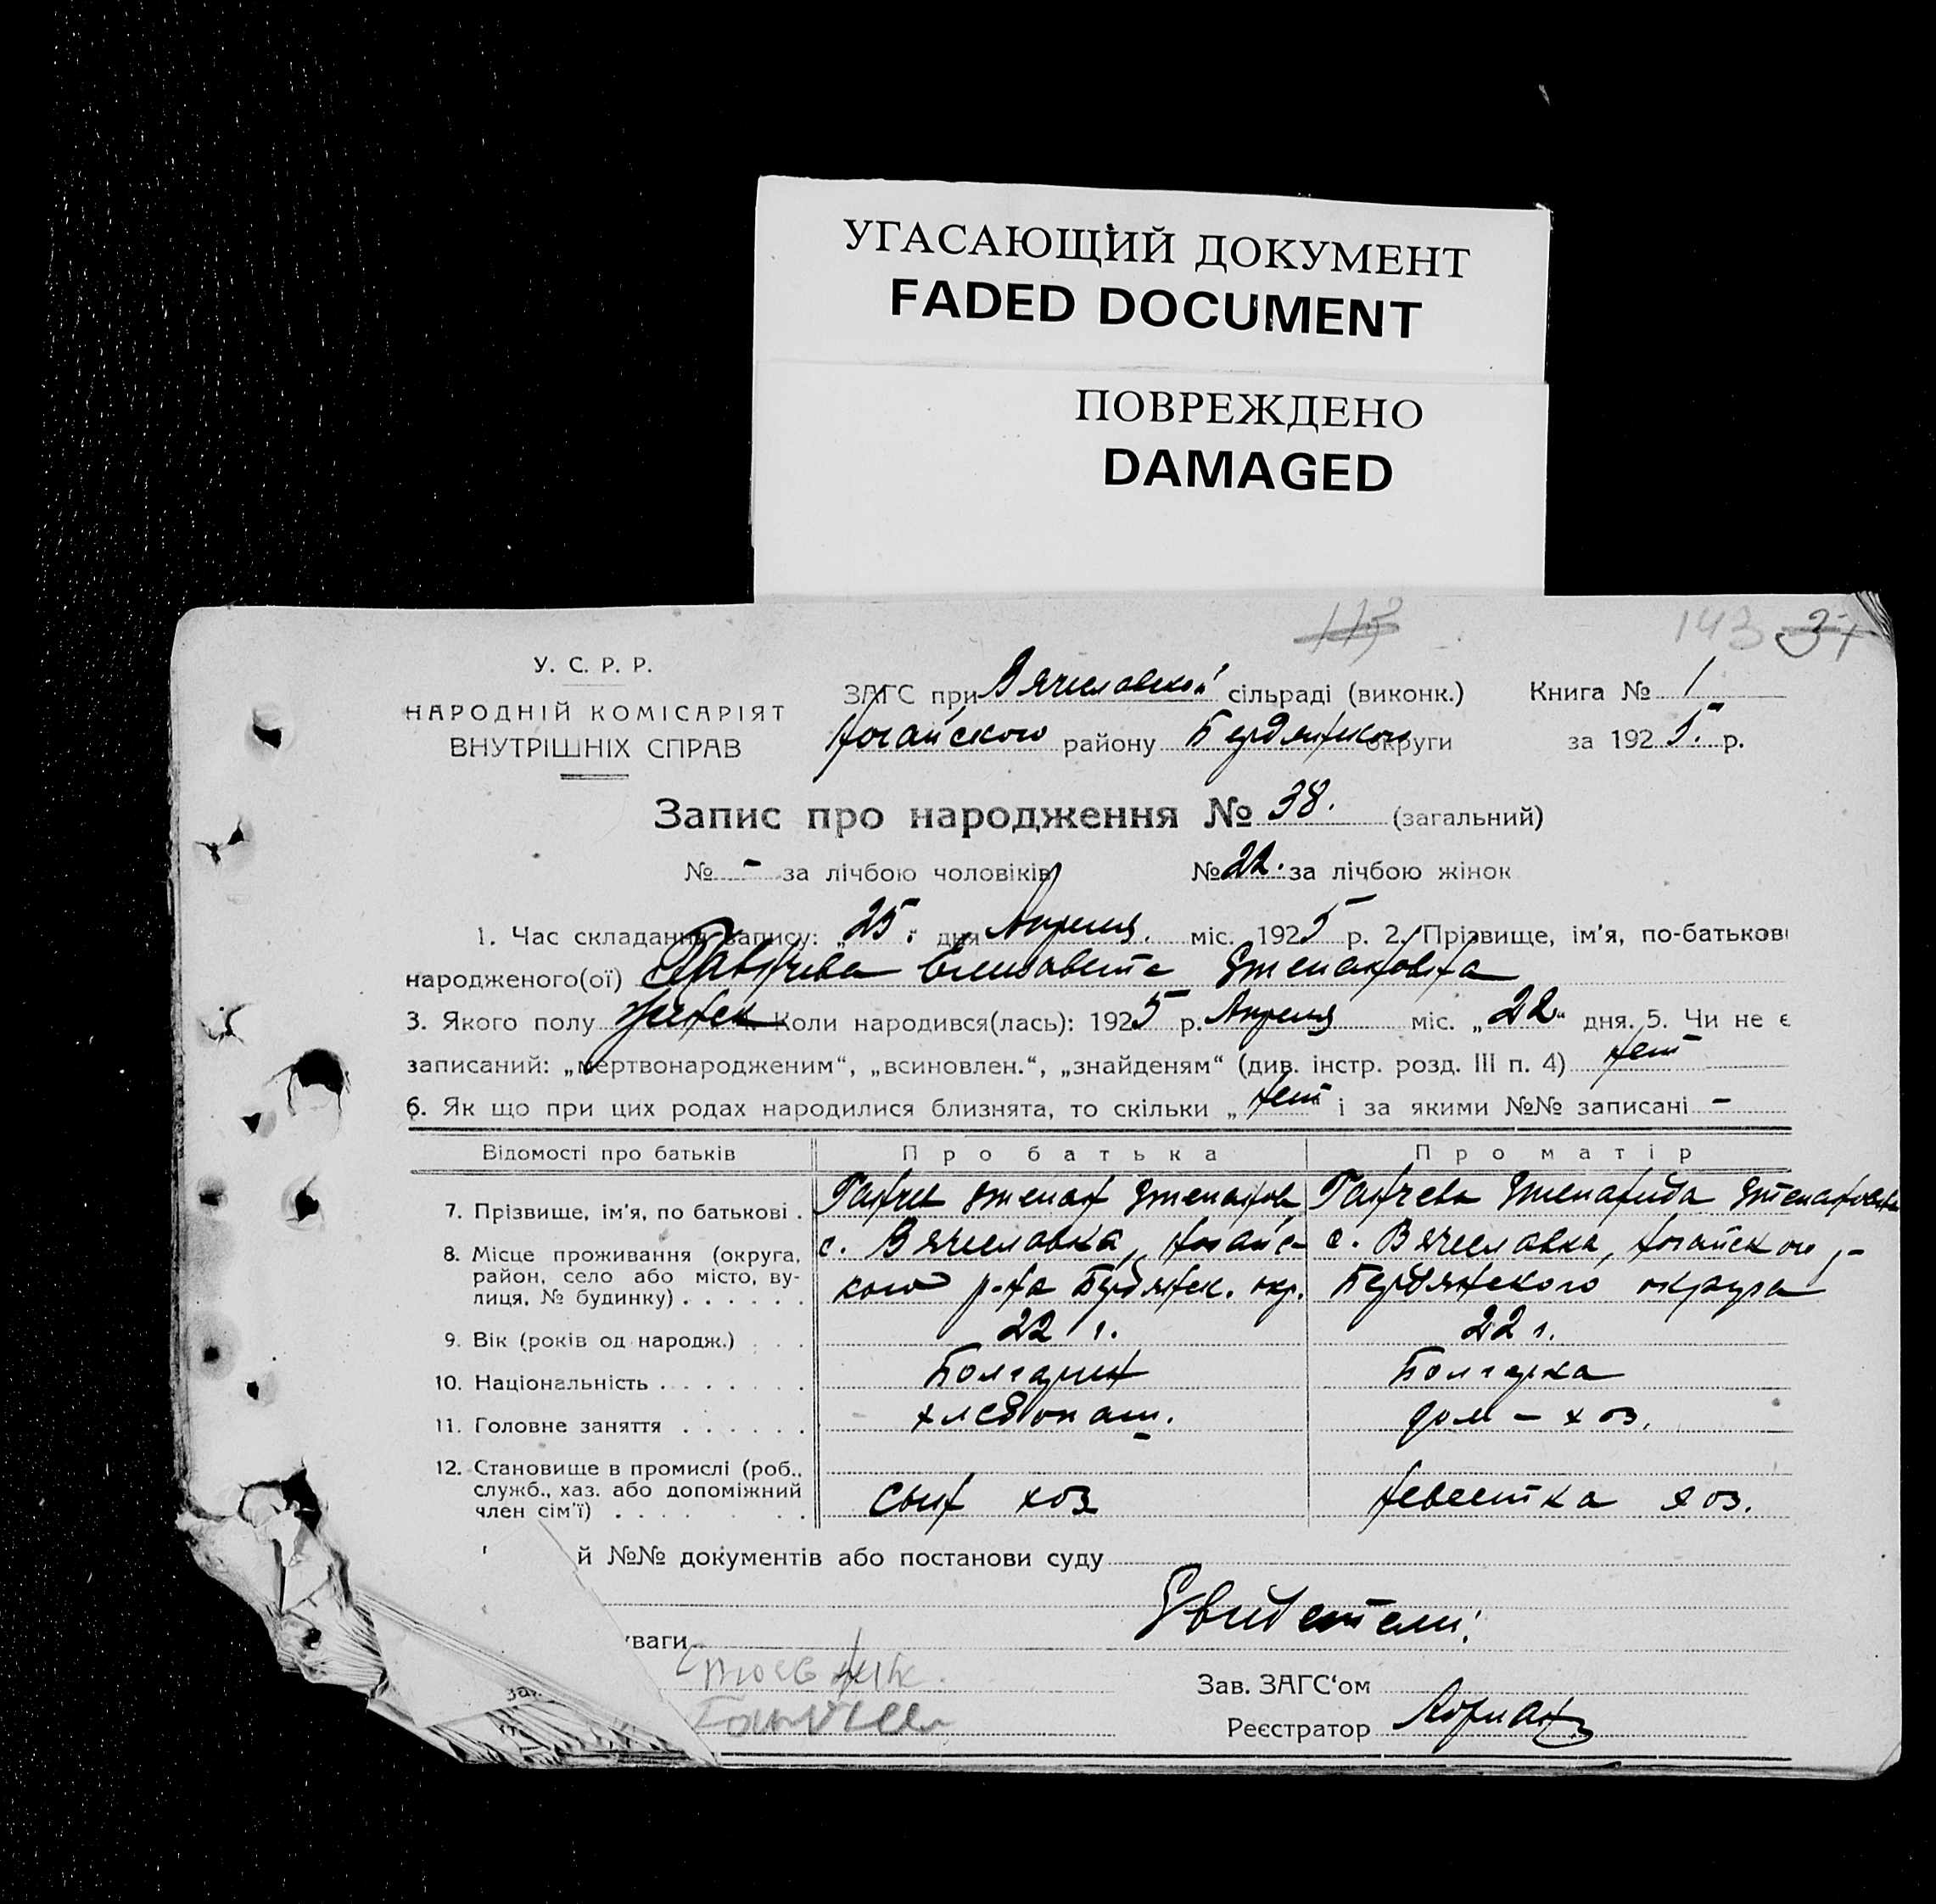 УГАСАЮЩИЙ ДОКУМЕНТ
FADED DOCUMENT
ПОВРЕЖДЕНО
DAMAGED
113 143 37
У. С. Р. Р.
НАРОДНІЙ КОМІСАРІЯТ
ВНУТРІШНІХ СПРАВ
ЗАГС при Вячеславской сільраді (виконк.) Книга № 1
Ногайского району Бердянского округи за 1925 р.
Запис про народження № 38. (загальний)
№ - за лічбою чоловіків № 22. за лічбою жінок
1. Час складання запису: „25" дня Апреля. міс. 1925 р. 2. Прізвище, ім'я, по-батькові
народженого(ої) Елизавета Степановна
3. Якого полу женск Коли народився(лась): 1925 р. Апреля міс. „22" дня. 5. Чи не є
записаний: „мертвонародженим", „всиновлен.", „знайденям" (див. інстр. розд. III п. 4) нет
6. Як що при цих родах народилися близнята, то скільки „нет" і за якими №№ записані -
Відомості про батьків Про батька Про матір
7. Прізвище, ім'я, по батькові . Ганчев Степан Степанов Ганчева Степанида Степановна
8. Місце проживання (округа, район, село або місто, вулиця, № будинку) . . . . . .
с. Вячеславка, Ногайс-
кого р-на Бердянск. окр.
с. Вячеславка, Ногайского,-
Бердянского округа
9. Вік (років од народж.) . . . 22 г. 22 г.
10. Національність . . . . . . . Болгарин Болгарка
11. Головне заняття . . . . . . хлебопаш. дом - хоз.
12. Становище в промислі (роб., служб., хаз. або допоміжний член сім'ї) . . . . . . сын хоз невестка хоз.
й №№ документів або постанови суду
Свидетели:
уваги
Зав. ЗАГС'ом
Реєстратор